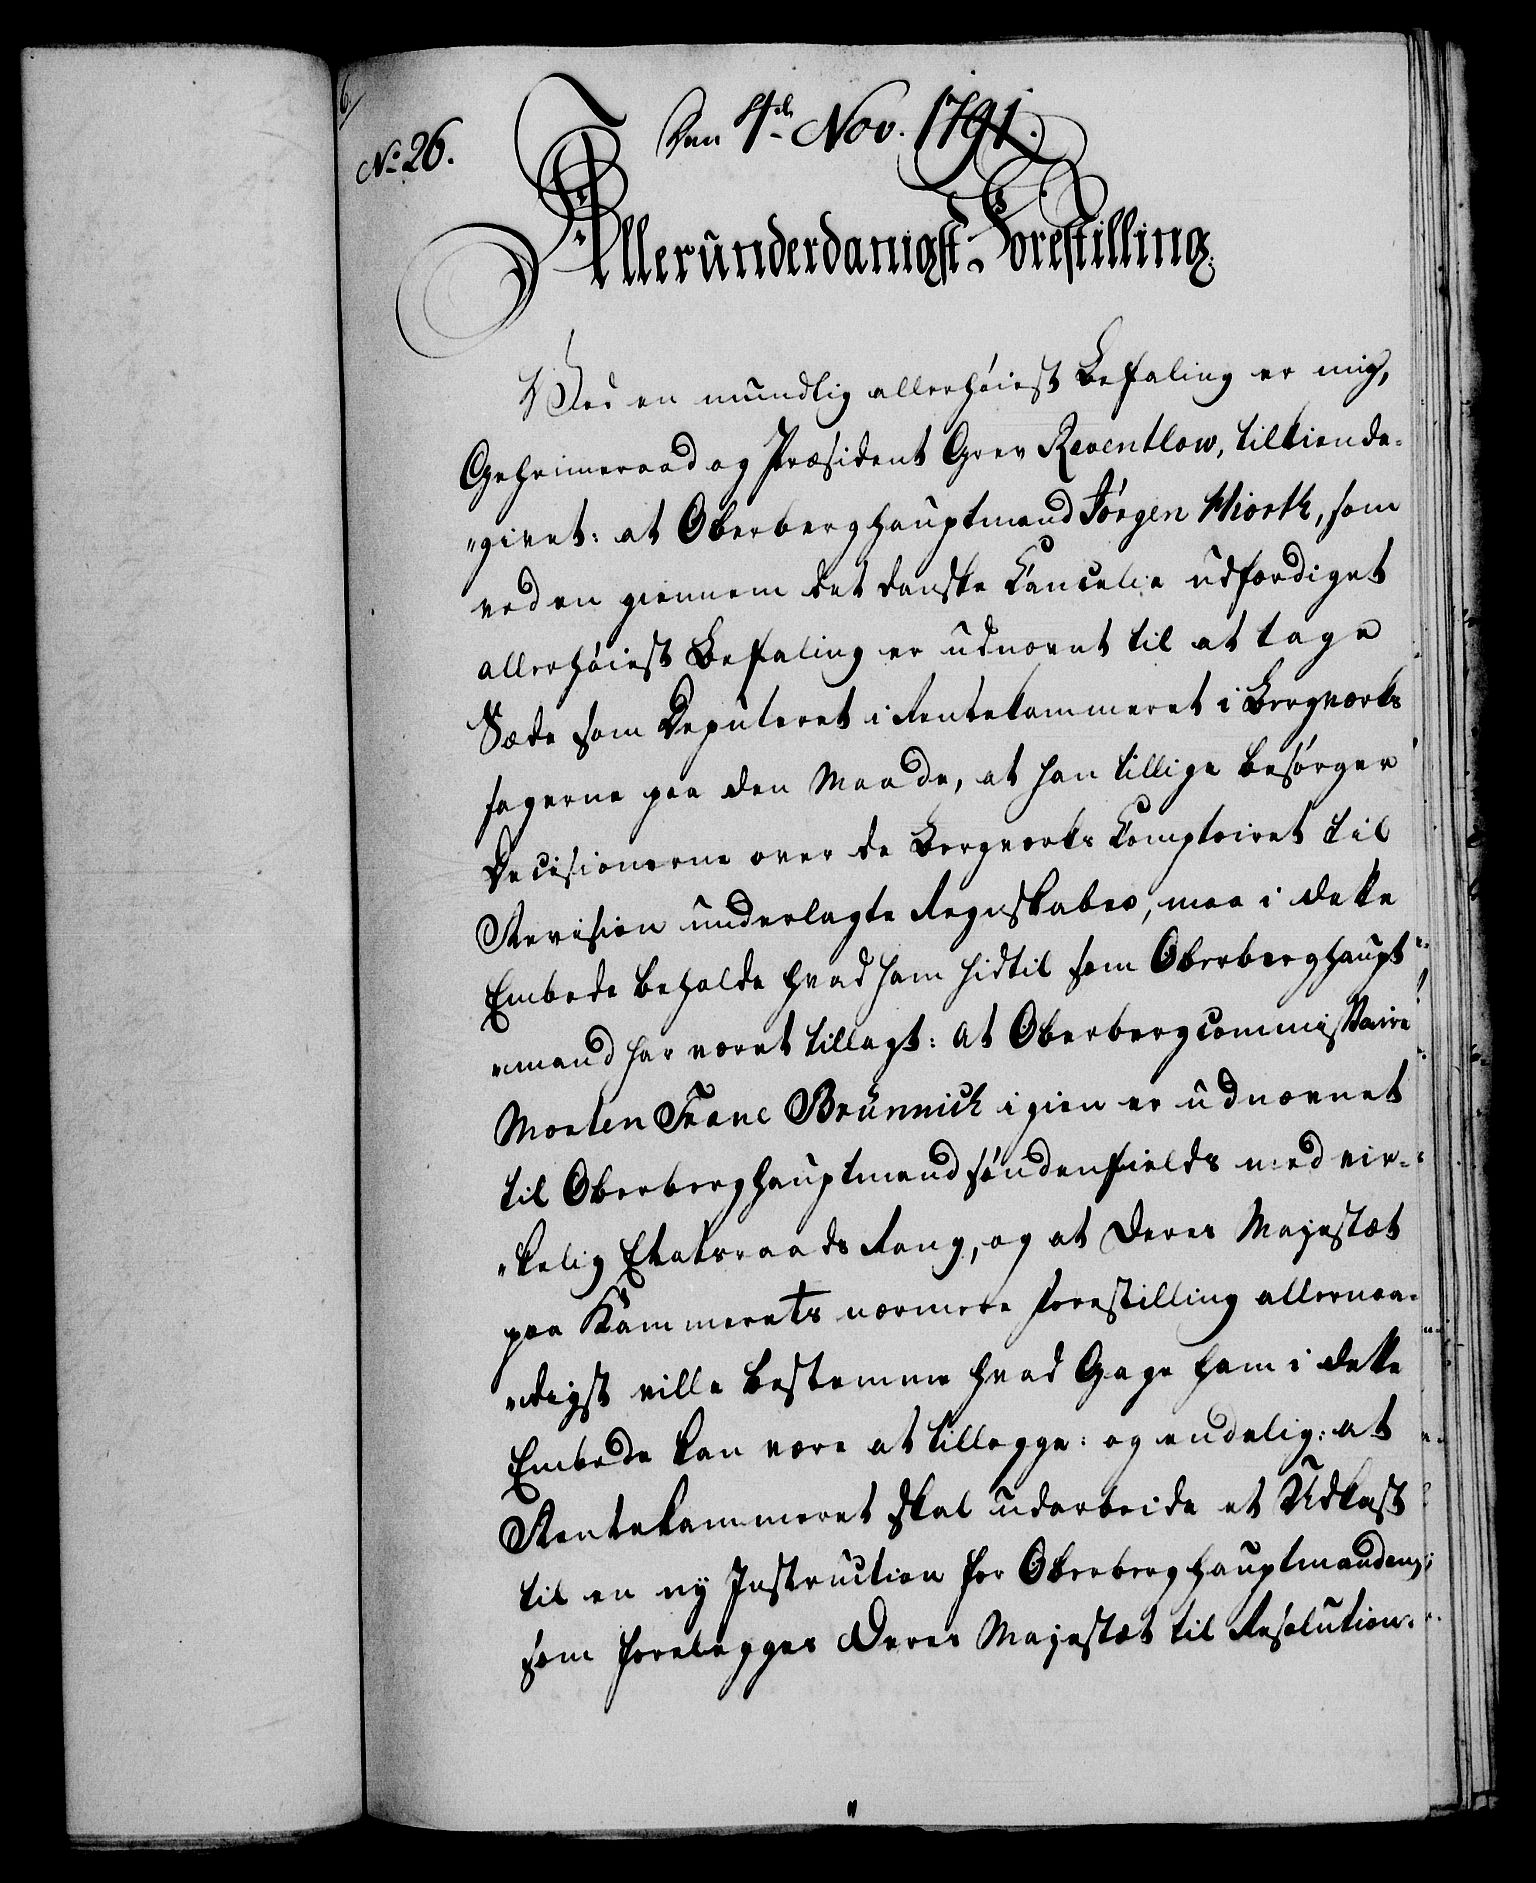 No: 26.
Den 4de Nov. 1791.
Allerunderdanigst Forestilling.
Ved en mundlig allerhøiest Befaling er mig,
Geheimeraad og Præsident Grev Reventlow, tilkiende-
"givet: at Oberberghauptmand Jørgen Hiorth, som
ved en giennem det danske Cancelie udfærdiget
allerhøiest Befaling er udnævnt til at tage
Sæde som Deputeret i Rentekammeret i Bergværks
sagerne paa den Maade, at han tillige besørger
Decisionerne over de Bergværks Comptoiret til
Revision underlagte Regnskaber, maa i dette
Embede beholde hvad ham hidtil som Oberberghaupt-
"mand har været tillagt: at Oberbergcommissaire
Morten Trane Brünnich igien er udnævnet
til Oberberghauptmand søndenfields med vir-
"kelig Etatsraads Rang, og at Deres Majestæt
paa Kammerets nærmere Forestilling allernaa-
"digst ville bestemme hvad Gage ham i dette
Embede kan være at tillægge: og endelig: at
Rentekammeret skal udarbeide et Udkast
til en ny Instruction for Oberberghauptmanden,
som forelægges Deres Majestæt til Resolution.